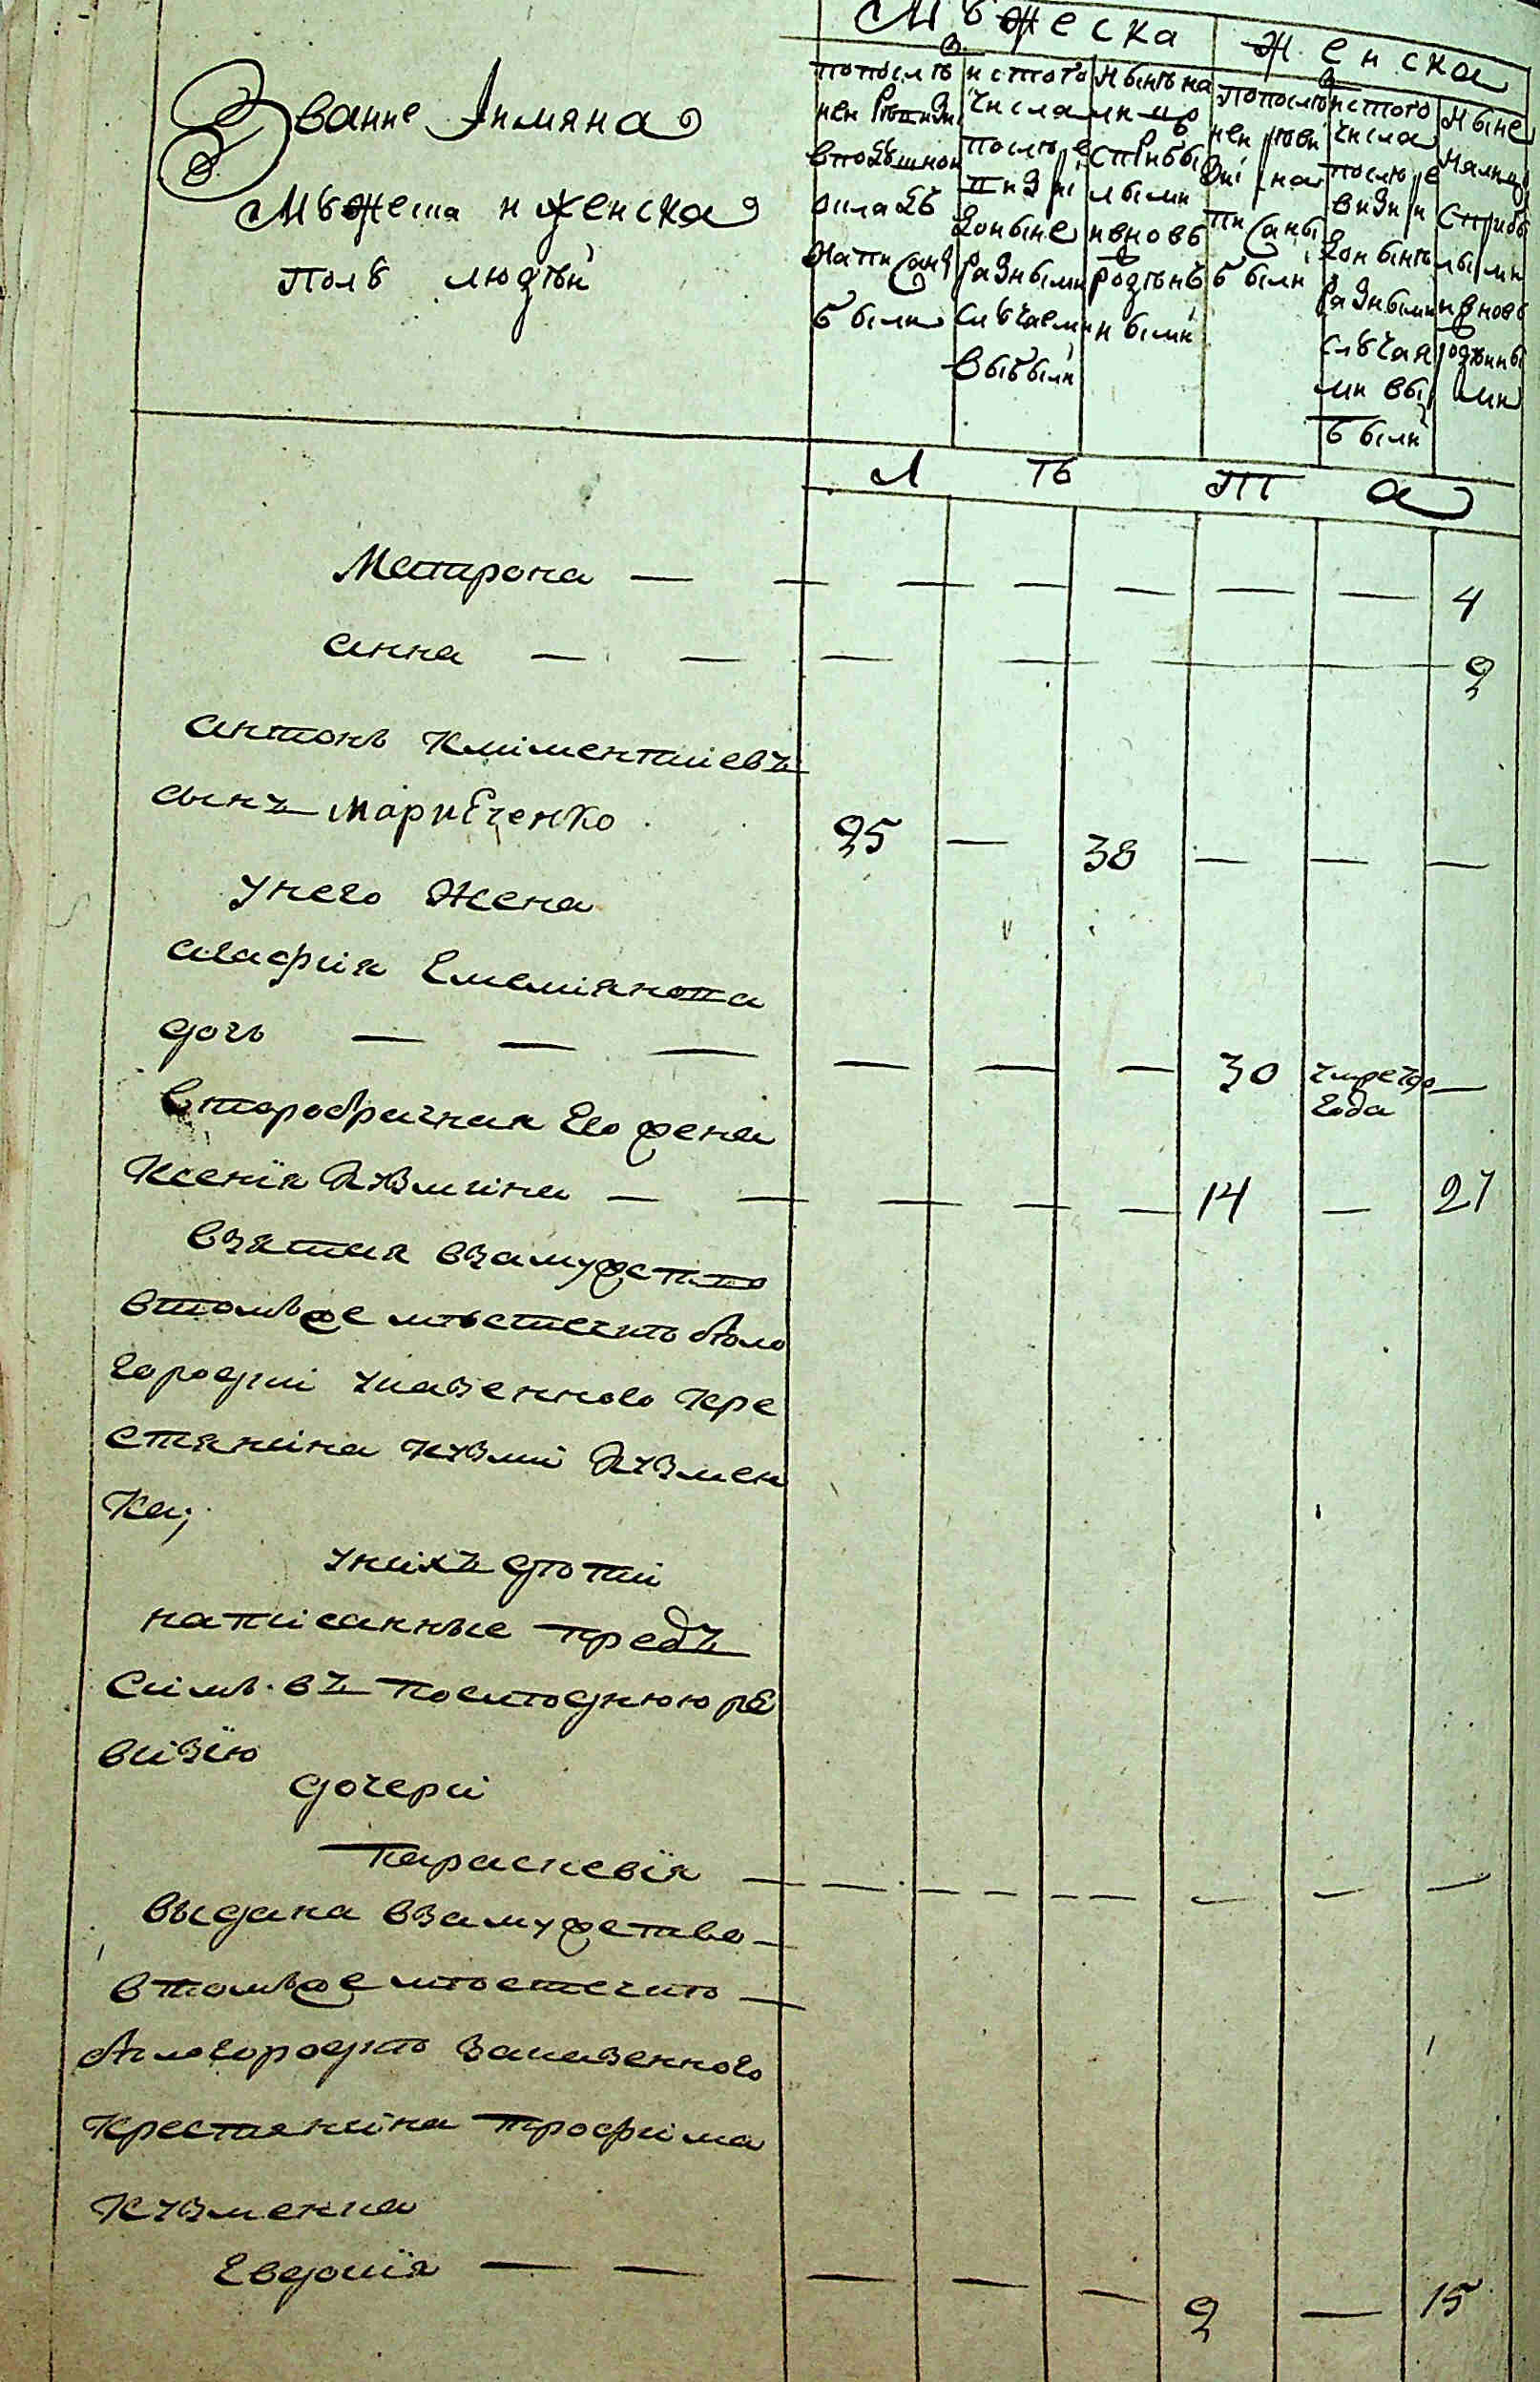 Мужеска
Женска
Звание Имяна
Мужеска и женска
полу людѣи
по послѣ
ней ревизи
в подушнои
оклад
написан
были
ис того
числа
после
ревизи
до ныне
разными
случаеми
выбыли
ныне на
лицо
с прибы
лыми
и вновь
рожден
ными
по послѣ
ней реви
зиї на
писаны
были
ис того
числа
после
ревизи
до нынѣ
разными
случая
ми вы
были
ныне
на лицо
с прибы
лыми
и вновь
рожденны
ми
Л Ѣ Т А
Матрона — — — — — — — 4
анна — — — — 2
антонъ Климентиевъ
сынъ Мариченко 25 — 38 — — —
у него Жена
агафия Емелиянова
дочь — — — — — — 30 умре 790 года —
второбрачная Его жена
Ксенїя Кузмина — — — — — 14 — 27
взятая взамужство
втомъже местечкѣ бѣло
городки указенного кре
стянина кузми Кузмен
ка;
у нихъ дѣти
написанные предъ
симъ въ последнюю ре
визїю
дочери
параскевїя — — — — — — — —
выдана взамужство
втомъже мѣстечкѣ
бѣлогородкѣ заказенного
крестянина трофима
кузменка
Евдокїя — — — — — 2 — 15